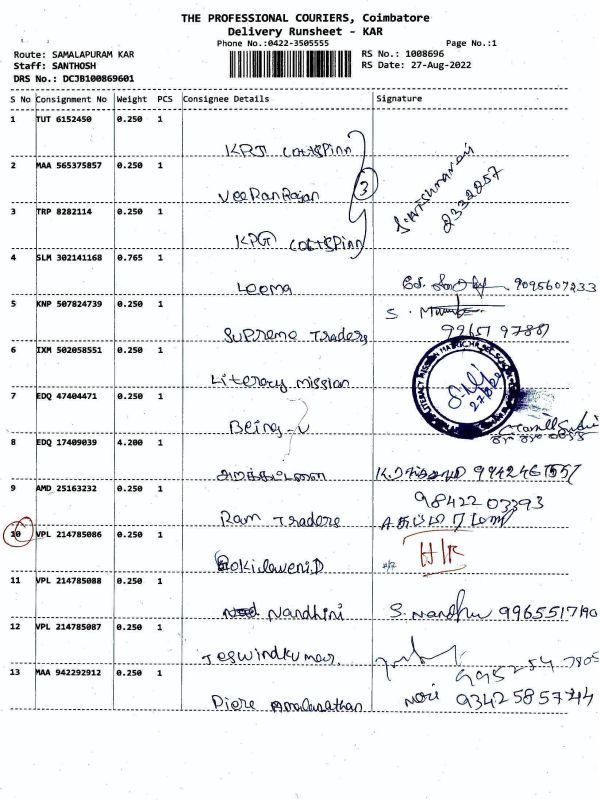 THE PROFESSIONAL COURIERS, Coimbatore
Delivery Runsheet - KAR
Phone No.:0422-3505555 Page No.:1
Route: SAMALAPURAM KAR RS No.: 1008696
Staff: SANTHOSH RS Date: 27-Aug-2022
DRS No.: DCJB100869601
S No Consignment No Weight PCS Consignee Details Signature
1 TUT 6152450 0.250 1
2 MAA 565375857 0.250 1
VeeRanRajan 3 2332257
3 TRP 8282114 0.250 1
4 SLM 302141168 0.765 1
Leema 9095607233
5 KNP 507824739 0.250 1
Supreme Traders
6 IXM 502058551 0.250 1
Literacy mission
7 EDQ 47404471 0.250 1
Being-U
8 EDQ 17409039 4.200 1
அறக்கட்டளை
9 AMD 25163232 0.250 1
Ram Traders 98422 03393
10 VPL 214785086 0.250 1
H/R
11 VPL 214785088 0.250 1
Nandhini S. Nandhu 9965517190
12 VPL 214785087 0.250 1
Jeswindkumar. 995254 7805
13 MAA 942292912 0.250 1
9342585744